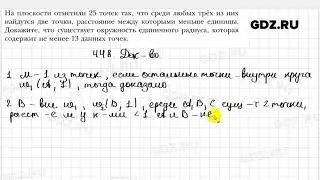 На плоскости отметили 25 точек так, что среди любых трёх из них
найдутся две точки, расстояние между которыми меньше единицы.
Докажите, что существует окружность единичного радиуса, которая
содержит не менее 13 данных точек.
GDZ.RU
448 Док-во
1. М - 1 из точек, если остальные точки - внутри круга
ω₁ (А, 1), тогда доказано
2. В - вне ω₁, ω₂(В, 1), среди А, В, С сущ-т 2 точки,
расст-е м/у к-ми < 1 А и В - не
GDZ.RU